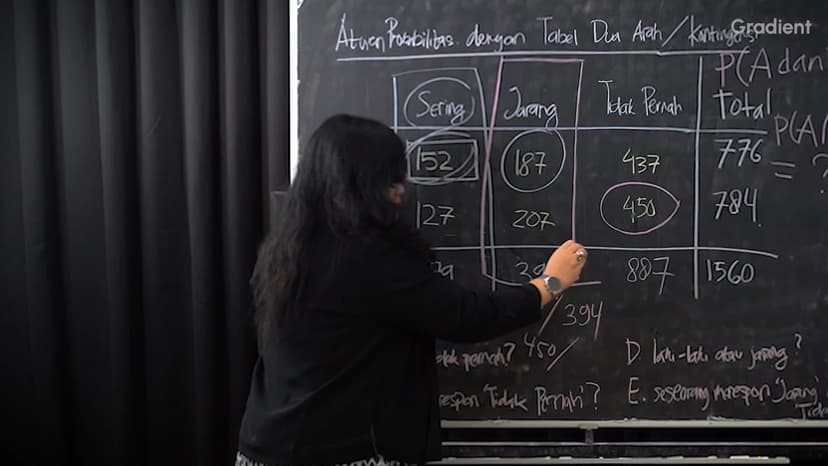 Gradient
Aturan Probabilitas dengan Tabel Dua Arah / Kontingensi
P(A dan
Sering Jarang Tidak Pernah Total
P(A
152 187 437 776
= ?
127 207 450 784
39 887 1560
394
pernah? 450 D. laki-laki atau jarang?
respon 'Tidak Pernah'? E. seseorang merespon 'Jarang'